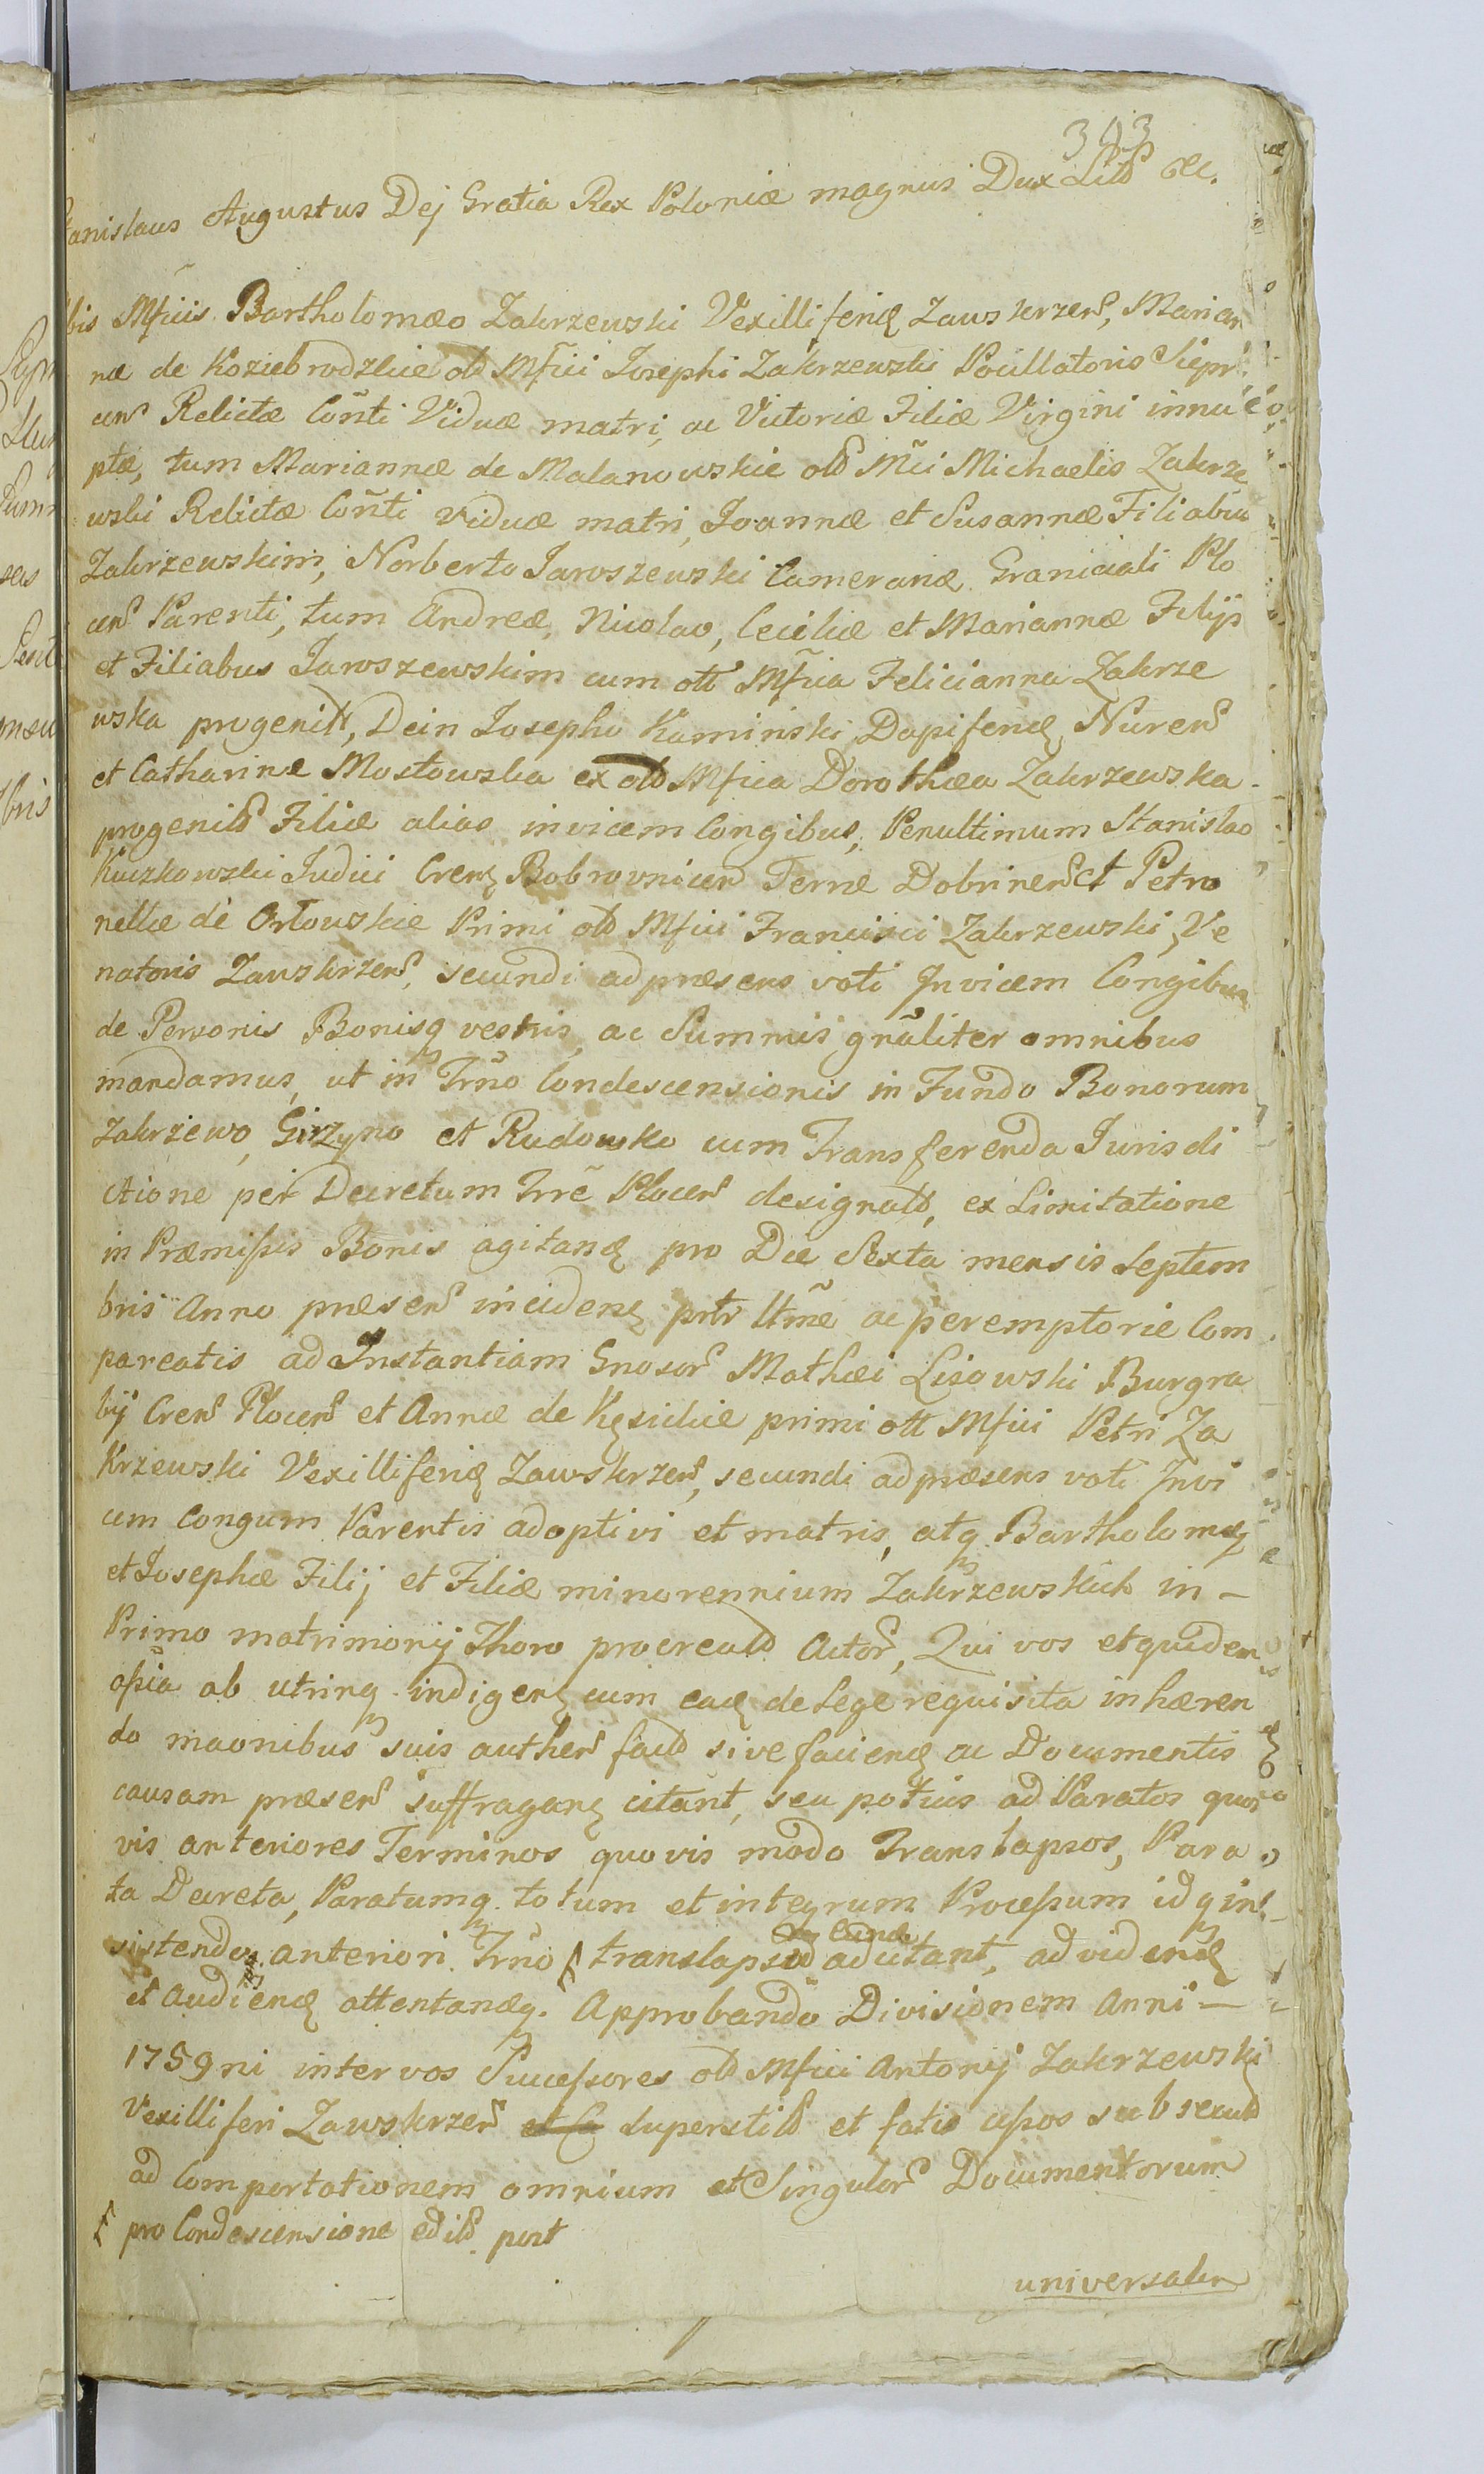 303
Stanislaus Augustus Dej Gratia Rex Poloniæ magnus Dux Litt &c.
bis Mficis Bartholomæo Zakrzewski Vexilliferiæ Zawskrzen, Marian
næ de Koziebrodzkie olb Mfici Josephi Zakrzewski Pocillatoris Siepr
cen Relictæ Conti Viduæ matri, ac Victoriæ Filiæ Virgini innu
ptæ, tum Mariannæ de Malanowskie olb Mci Michaelis Zakrze
wski Relictæ Conti viduæ matri, Joannæ et Susannæ Filiabus
Zakrzewskim, Norberto Jaroszewski Camerariæ Graniciali Plo
cen Parenti, tum Andreæ, Nicolao, Ceciliæ et Mariannæ Filijs
et Filiabus Jaroszewskim cum olt Mfica Felicianna Zakrze
wska progenitt, Dein Josepho Kaminski Dapiferiæ Nuren
et Catharinæ Mostowska ex olb Mfica Dorothæa Zakrzewska
progenitt Filiæ alias invicem Congibus, Penultimum Stanislao
Kuczkowski Judici Cren Bobrovnicen Terræ Dobrinen et Petro
nellæ de Orłowskie Primi olb Mfici Francisci Zakrzewski Ve
natoris Zawskrzen, secundi ad præsens voti Invicem Congibus
de Personis Bonisq vestris, ac Summis gnaliter omnibus
mandamus, ut in Trno Condescensionis in Fundo Bonorum
Zakrzewo, Girzyno et Rudowko cum Transferenda Jurisdi
ctione per Decretum Trre Plocen designatt, ex Limitatione
in Præmissis Bonis agitanæ pro Die Sexta mensis Septem
bris Anno præsen inciden prtr Ltme ac peremptorie Com
pareatis ad Instantiam Gnosor Mathæi Lisowski Burgra
bij Cren Plocen et Annæ de Kęsickie primi olt Mfici Petri Za
krzewski Vexilliferiæ Zawskrzen, secundi ad præsens voti Invi
cem Congum Parentis adoptivi et matris, atq Bartholomæj
et Josephæ Filij et Filiæ minorennium Zakrzewskich in –
Primo matrimonij Thoro procreatt Actor, Qui vos et quidem
assia ab utrinq indigen cum eaæ de Lege requisita inhæren
do maonibus suis authen factt sive facienæ ac Documentis
causam præsen suffragan citant, seu potius ad Paratos quos
vis anteriores Terminos quovis modo Translapsos, Para
ta Decreta, Paratumq totum et integrum Processum idq in
sistendo anteriori Trno translapso adcitant, ad videnæ
et audienæ attentanæq. Approbando Divisionem Anni –
1759ni inter vos Successores olb Mfici Antonij Zakrzewski
Vexilliferi Zawskrzen superstitt et fatis ipsos subsecutt
ad Comportationem omnium et Singulor Documentorum
pro Condescensione editt port
universaln